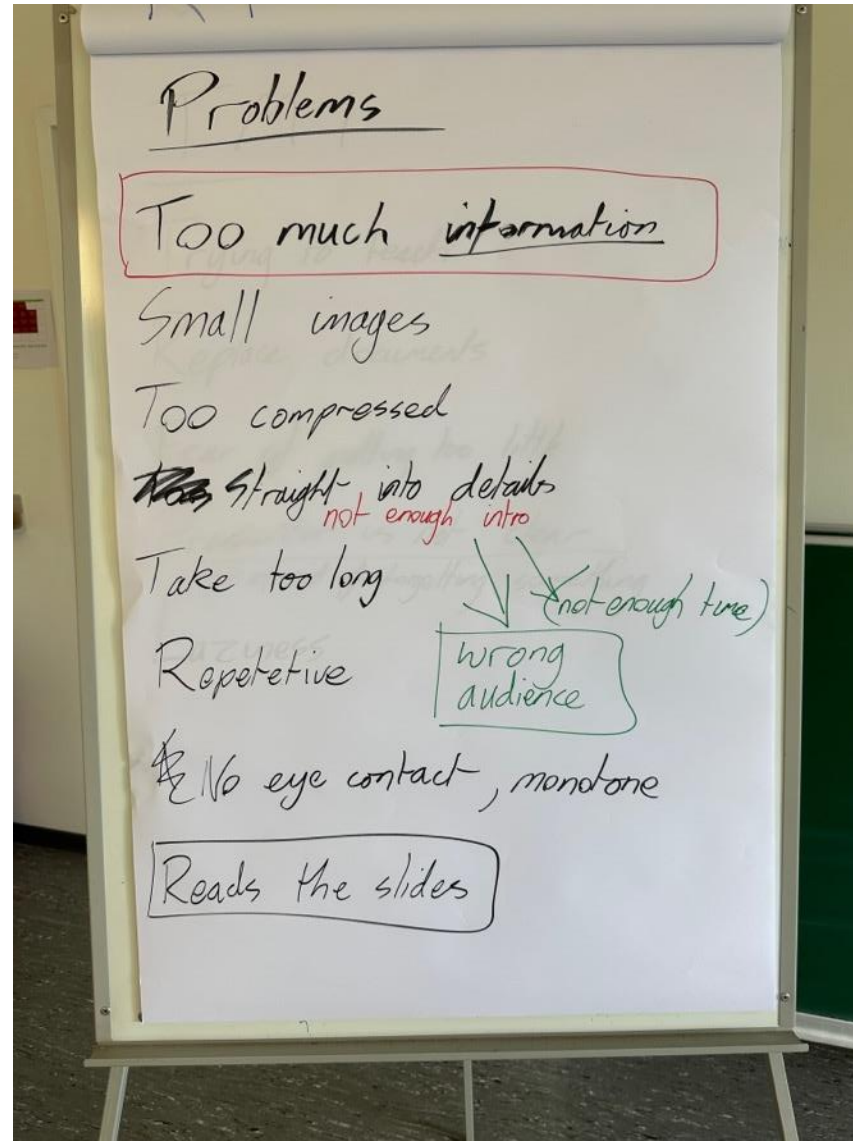 Problems
Too much information
Small images
Too compressed
Straight into details
not enough intro
Take too long
(not enough time)
Repetetive
wrong
audience
No eye contact, monotone
Reads the slides